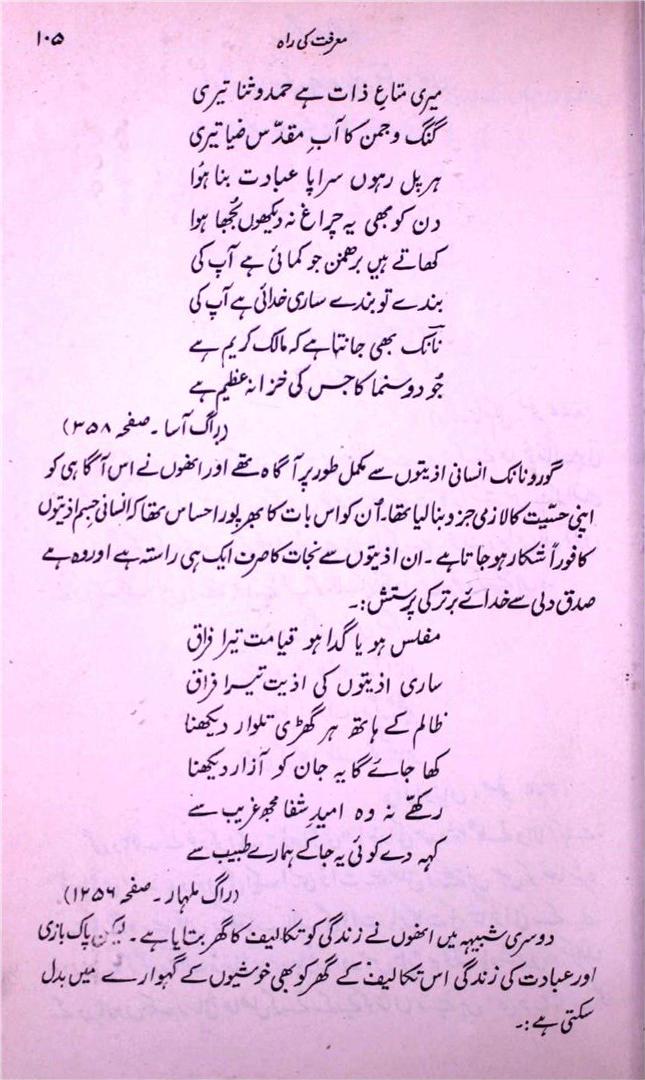 معرفت کی راہ ۱۰۵
میری متاعِ ذات ہے حمد و ثنا تیری
گنگ و جمن کا آبِ مقدّس ضیا تیری
ہر پل رہوں سراپا عبادت بنا ہُوا
دن کو بھی یہ چراغ نہ دیکھوں بُجھا ہوا
کھاتے ہیں برھمن جو کمائی ہے آپ کی
بندے تو بندے ساری خدائی ہے آپ کی
نانک بھی جانتا ہے کہ مالک کریم ہے
جُود و سخا کا جس کی خزانہ عظیم ہے
(راگ آسا ۔ صفحہ ۳۵۸)
گورو نانک انسانی اذیتوں سے مکمل طور پر آگاہ تھے اور انھوں نے اس آگاہی کو
اپنی حسّیت کا لازمی جزو بنا لیا تھا۔ اُن کو اس بات کا بھرپور احساس تھا کہ انسانی جسم اذیتوں
کا فوراً شکار ہو جاتا ہے۔ ان اذیتوں سے نجات کا صرف ایک ہی راستہ ہے اور وہ ہے
صدق دلی سے خدائے برتر کی پرستش :۔
مفلس ہو یا گدا ہو قیامت تیرا فراق
ساری اذیتوں کی اذیت تیرا فراق
ظالم کے ہاتھ ہر گھڑی تلوار دیکھنا
کھا جائے گا یہ جان کو آزار دیکھنا
رکھّے نہ وہ امیدِ شفا مجھ غریب سے
کہہ دے کوئی یہ جا کے ہمارے طبیب سے
(راگ ملہار ۔ صفحہ ۱۲۵۶)
دوسری شبیہہ میں انھوں نے زندگی کو تکالیف کا گھر بتایا ہے۔ لیکن پاک بازی
اور عبادت کی زندگی اس تکالیف کے گھر کو بھی خوشیوں کے گہوارے میں بدل
سکتی ہے :۔